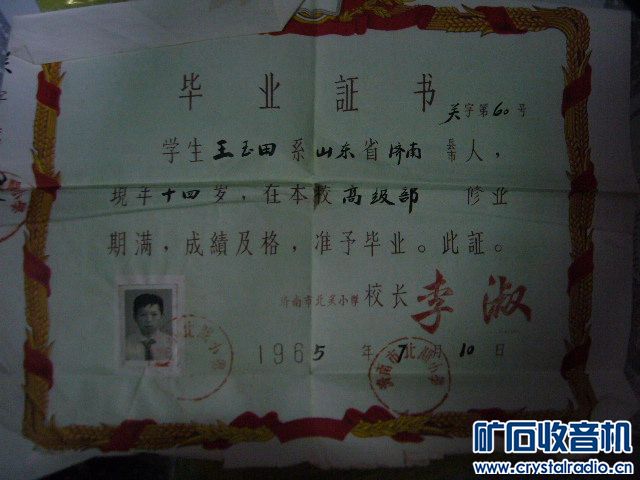 毕业証书
关字第60号
学生王玉田系山东省济南县市人，
現年十四岁，在本校高级部修业
期满，成績及格，准予毕业。此証。
济南市北关小学校长李淑
1965年7月10日
矿石收音机
www.crystalradio.cn